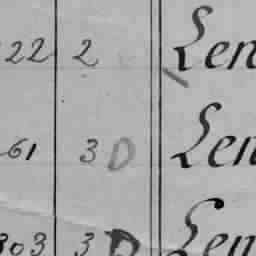 22 2 Len
61 3 D Len
303 3 D Len